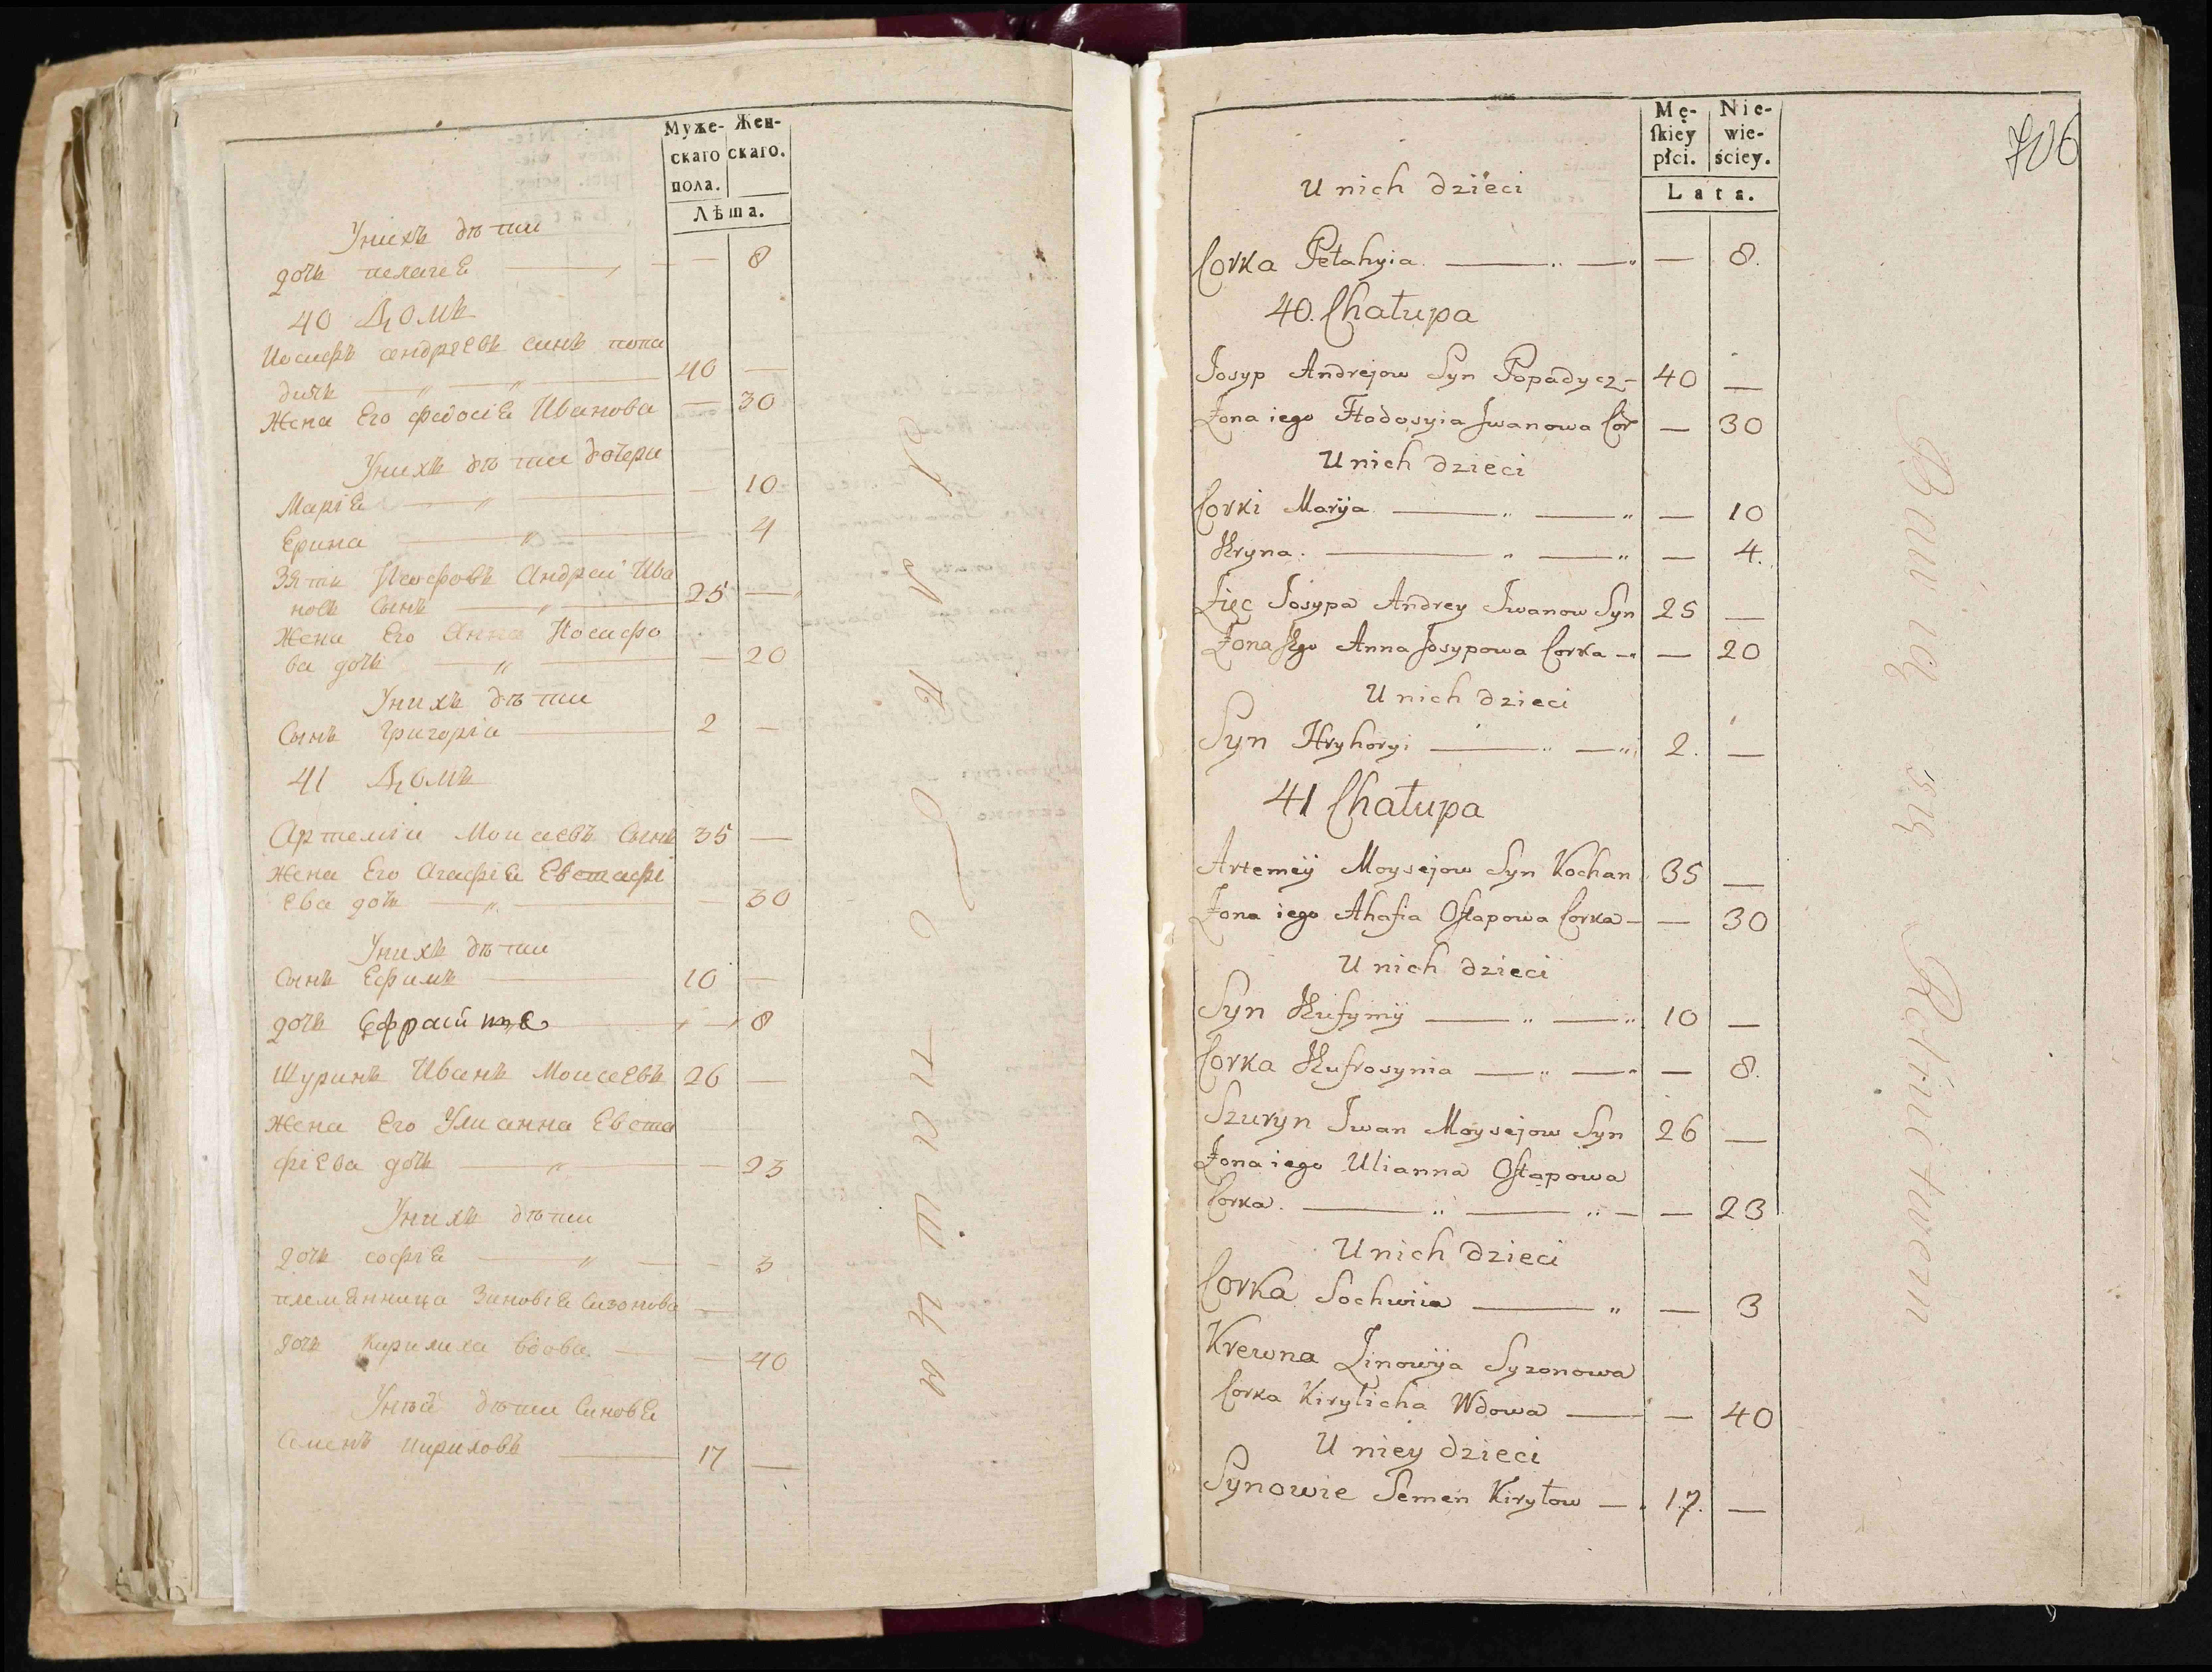 Муже- Жен-
скаго скаго.
пола.
Лѣта.
Унихъ дѣти
дочь пелагеѣ — — 8
40 Домъ
Иосифъ андреевъ синъ попа
дичъ — 40 —
Жена Его федосіѣ Иванова — 30
Унихъ дѣти дочери
Маріѣ — — 10
Ерина — 4
Зять Иосифовъ Андрей Ива
новъ Сынъ — 25 —
Жена Его Анна Иосифо
ва дочь — — 20
Унихъ дѣти
Сынъ Григоріи — 2 —
41 Домъ
Артемій Моисеевъ Сынъ 35 —
Жена Его Агафіѣ Евстафі
Ева дочь — — 30
Унихъ дѣти
Сынъ Ефимъ — 10 —
дочь — 8
Шуринъ Иванъ Моисеевъ 26 —
Жена Его Улианна Евста
фіева дочь — — 23
Унихъ дѣти
дочь софіѣ — — 3
племѣнница Зиновіѣ Сизонова —
дочь Кирилиха вдова — — 40
Унѣй дѣти Синовѣ
Семенъ Кириловъ — 17 —
Mę- Nie-
ſkiey wie-
płci. ściey.
Lata.
706
U nich dzieci
Corka Pełahyia — — 8.
40. Chałupa
Josyp Andrejow Syn Popadycz - 40 —
Żona iego Ftodosyia Jwanowa Cor — 30
U nich dzieci
Corki Maryja — — 10
Hryna. — — 4.
Zięc Josypa Andrey Jwanow Syn 25 —
Żona Jego Anna Josypowa Corka — — 20
U nich dzieci
Syn Hryhoryi — 2. —
41 Chałupa
Artemij Moysejow Syn Kochan 35 —
Żona iego Ahafia Oſtapowa Corka — — 30
U nich dzieci
Syn Hufymij — 10 —
Corka Hufrosynia — — 8.
Szuryn Jwan Moysejow Syn 26 —
Żona iego Ulianna Oſtapowa
Corka. — — 23
U nich dzieci
Corka Sochwiia — — 3
Krewna Zinowija Syzonowa
Corka Kirylicha Wdowa — — 40
U niey dzieci
Synowie Semen Kiryłow — 17. —